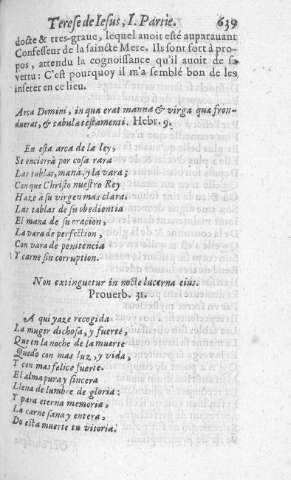 Terese de Iesus, I. Partie. 639
docte & tres-graue, lequel auoit esté auparauant
Confesseur de la saincte Mere. Ils sont fort à pro-
pos, attendu la cognoissance qu'il auoit de sa
vertu: C'est pourquoy il m'a semblé bon de les
inserer en ce lieu.
Arca Domini, in qua erat manna & virga qua fron-
duerat, & tabula testamenti. Hebr. 9.
En esta arca de la ley,
Se encierrà por cosa rara
Las tablas, mana, y la vara;
Con que Christo nuestro Rey
Haze à su virgen mas clara.
Las tablas de su obedientia
El mana de su oracion,
La vara de perfection,
Con vara de penitencia
Y carne sin corruption.
Non extinguetur in nocte lucerna eius.
Prouerb. 31.
A qui yaze recogida
La muger dichosa, y fuerte,
Que en la noche de la muerte
Quedò con mas luz, y vida,
Y con mas felice suerte.
El alma pura y sincera
Llena de lumbre de gloria:
Y para eterna memoria,
La carne sana y entera,
Do esta muerte tu vitoria.